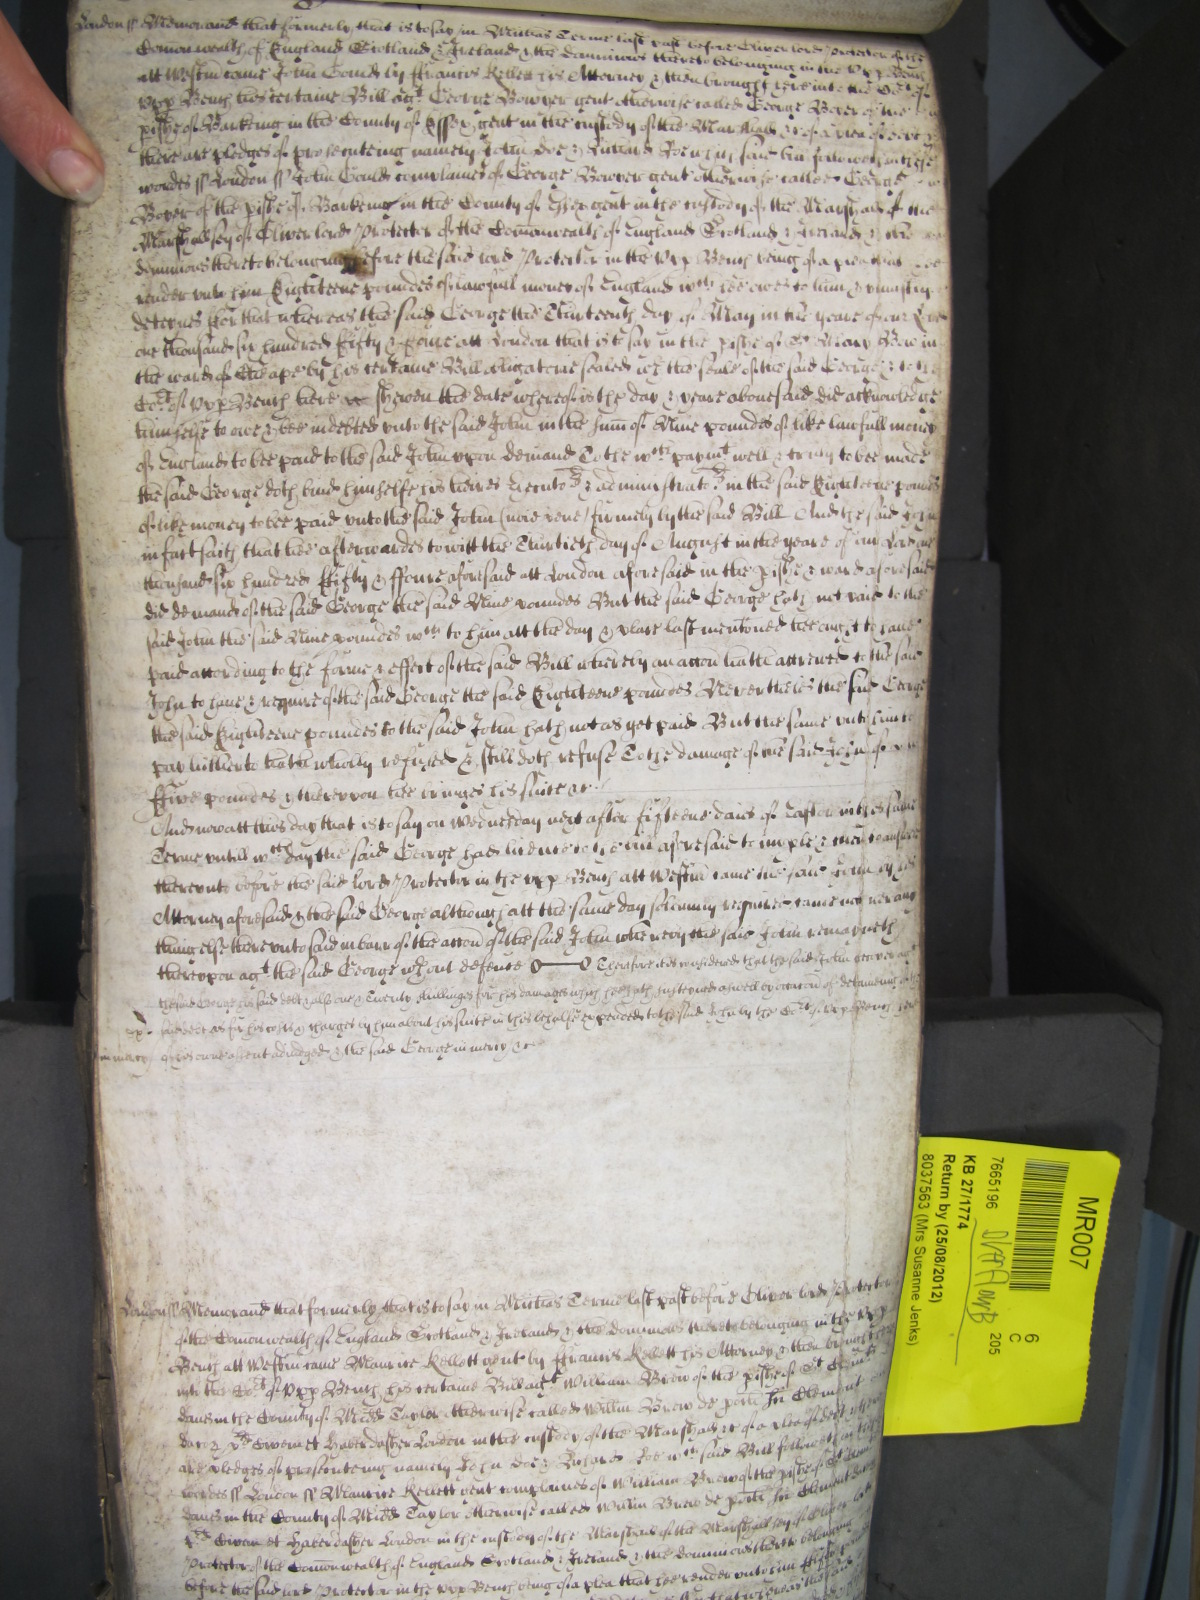 London ss Memorand that formerly that is to say in Michas Terme last past before Oliver lord Protector of the
Comonwealth of England Scotland & Ireland & the dominions thereto belonging in the vpp Bench
att Westm came John Gould by ffrancis Kellett his Attorney & then brought here into the Cort of
vpp Bench his certaine Bill agt George Bowyer gent otherwise called George Boyer of the
pishe of Barkeing in the County of Essex gent in the custody of the Marshall &c of a plea of debt &
there are pledges of prosecuteing namely John Doe & Richard Roe wch said bill followeth in these
wordes ss London ss John Gould complaines of George Bowyer gent otherwise called George
Boyer of the pishe of Barkeing in the County of Essex gent in the custody of the Marshall of the
Marshallsey of Oliver lord Protector of the Comonwealth of England Scotland & Ireland & the
dominions thereto belonging before the said lord Protector in the vpp Bench being of a plea that hee
render vnto him Eighteene poundes of lawfull money of England wch hee owes to him & vniustly
deteynes ffor that whereas the said George the Thirteenth day of May in the yeare of our Lord
one thousand six hundred fifty & foure att London that is to say in the pishe of St Mary Bow in
the ward of Cheape by his certaine Bill obligatorie sealed wth the seale of the said George & to the
Cort of vpp Bench here shewen the date whereof is the day & yeare abovesaid did acknowledge
himselfe to owe & bee indebted vnto the said John in the sum of Nine poundes of like lawfull money
of England to bee paid to the said John vpon demand To the wch paymt well & truly to bee made
the said George doth bind himselfe his heires Executors & administrators in the said Eighteene poundes
of like money to bee paid vnto the said John firmely by the said Bill And the said John
in fact saith that hee afterwardes to witt the Thirtieth day of August in the yeare of our Lord one
thousand six hundred ffifty & ffoure aforesaid att London aforesaid in the pishe & ward aforesaid
did demand of the said George the said Nine poundes But the said George hath not paid to the
said John the said Nine poundes wch to him att the day & place last mentioned hee ought to have
paid according to the forme & effect of the said Bill whereby an accon hath accrewed to the said
John to have & require of the said George the said Eighteene poundes Neverthelesse the said George
the said Eighteene poundes to the said John hath not as yet paid But the same vnto him to
pay hitherto hath wholly refused & still doth refuse To the damage of the said John of
ffive poundes & thereupon hee bringes his suite &c.
And now att this day that is to say on Wednesday next after fifteene daies of Easter in this same
Terme vntill wch day the said George had licence to the bill aforesaid to imple & then to answer
therevnto before the said lord Protector in the vpp Bench att Westm came the said John by his
Attorney aforesaid & the said George although att the same day solemnly required came not nor any
thing else therevnto said in barr of the accon of the said John whereby the said John remayneth
therevpon agt the said George wthout defence Therefore it is considered that the said John recover agt
the said George his said debt & alsoe Twenty shillinges for his damages which hee hath susteyned aswell by occasion of deteineing of the
said debt as for his costs & charges by him about his suite in this behalfe expended to the said John by the Cort of vpp Bench here
in mercy of his owne assent adiudged & the said George in mercy &c
London ss Memorand that formerly that is to say in Michas Terme last past before Oliver lord Protector
of the Comonwealth of England Scotland & Ireland & the dominions thereto belonging in the vpp
Bench att Westm came Maurice Kellett gent by ffrancis Kellett his Attorney & then brought here
into the Cort of vpp Bench his certaine Bill agt William Brew of the pishe of St Clemt
danes in the County of Midd Taylor otherwise called Willm Brew de poch Sci Clement
Haberdasher London in the custody of the Marshall &c of a plea of debt & there
are pledges of prosecuteing namely John Doe & Richard Roe wch said Bill followeth in these
wordes ss London ss Maurice Kellett gent complaines of William Brew of the pishe of St Clement
danes in the County of Midd Taylor otherwise called Willm Brew de poch Sci Clement
et Haberdasher London in the custody of the Marshall of the Marshallsey of Oliver lord
Protector of the Comonwealth of England Scotland & Ireland & the dominions thereto belonging
before the said lord Protector in the vpp Bench being of a plea that hee render vnto him
MR007
6
C
205
7665196
KB 27/1774
Return by (25/08/2012)
8037563 (Mrs Susanne Jenks)